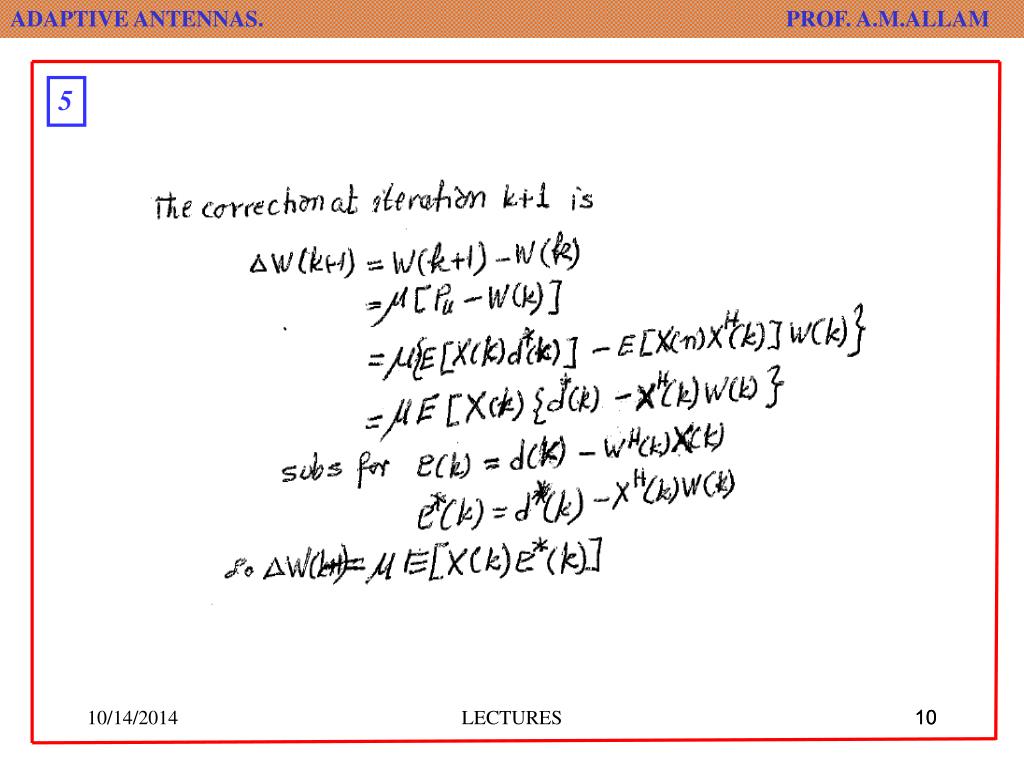 ADAPTIVE ANTENNAS. PROF. A.M.ALLAM
5
The correction at iteration k+1 is
ΔW(k+1) = W(k+1) - W(k)
= μ[Pu - W(k)]
= μ{E[X(k)d*(k)] - E[X(n)X^H(k)]W(k)}
= μE[X(k){d*(k) - X^H(k)W(k)}
subs for e(k) = d(k) - W^H(k)X(k)
e*(k) = d*(k) - X^H(k)W(k)
So ΔW(k+1) = μE[X(k)e*(k)]
10/14/2014 LECTURES 10